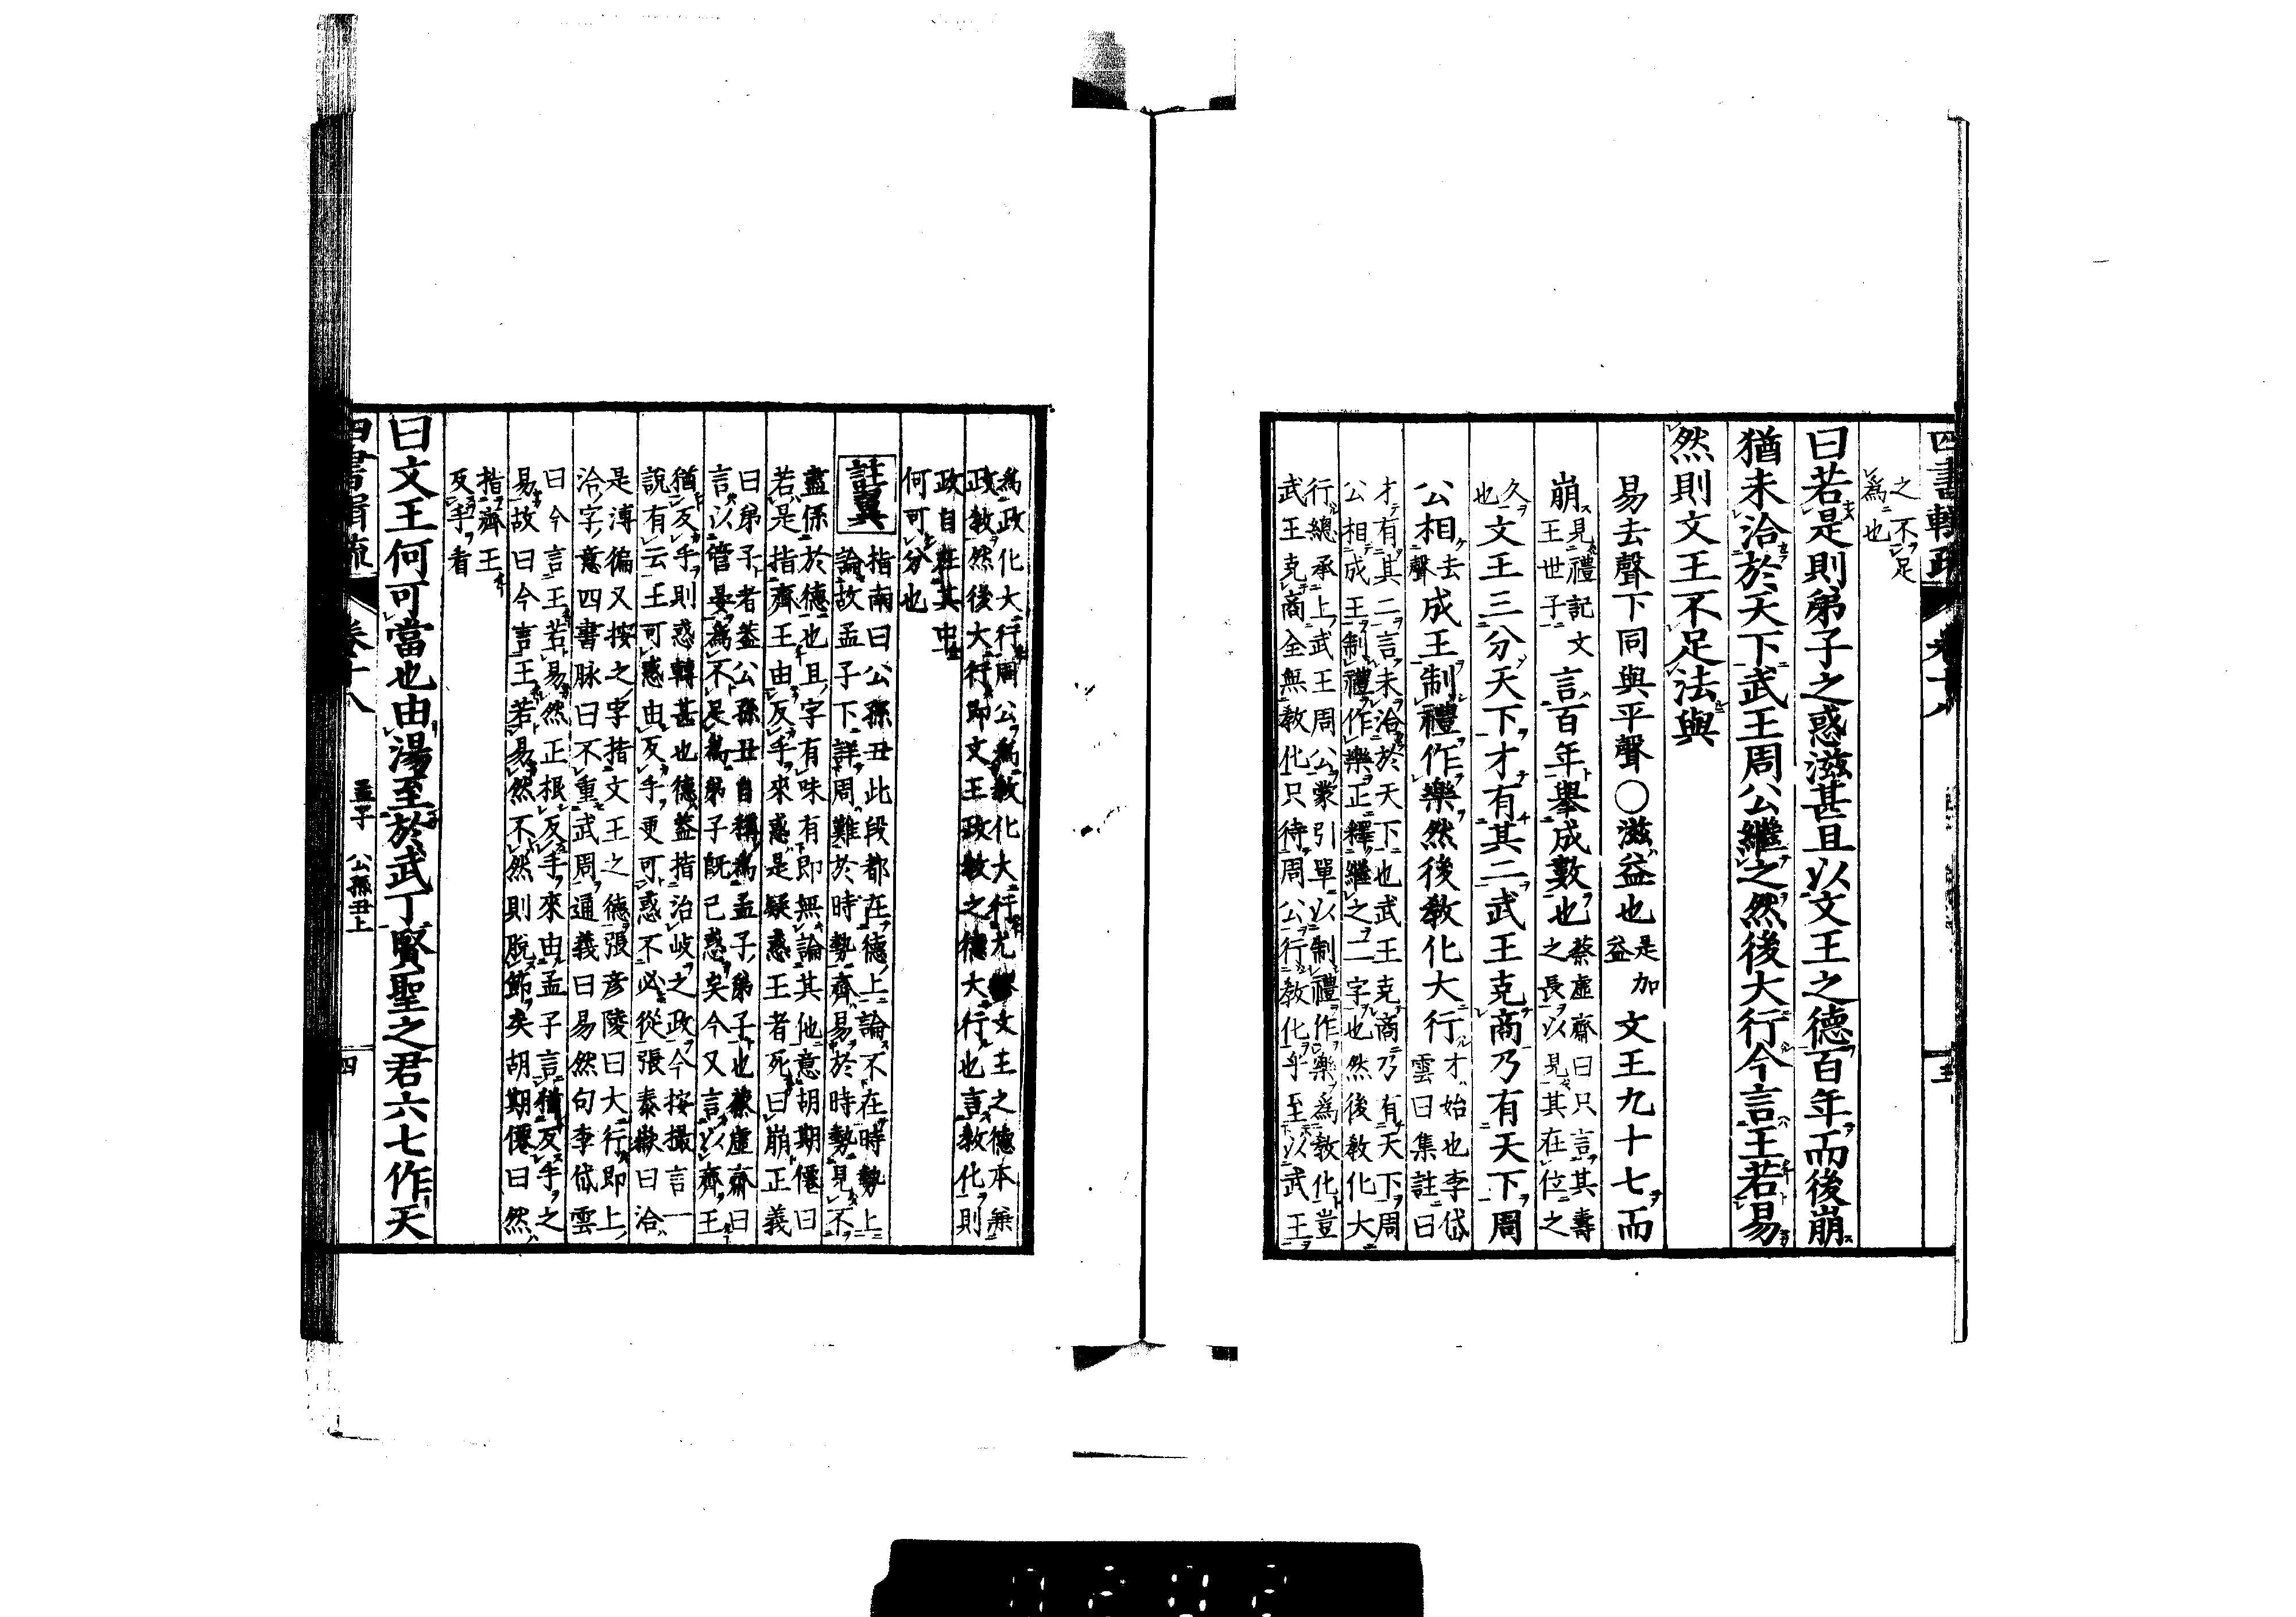 四書輯疏 卷十八
之不足
爲也
曰若是則弟子之惑滋甚且以文王之德百年而後崩
猶未洽於天下武王周公繼之然後大行今言王若易
然則文王不足法與
易去聲下同與平聲○滋益也是加益文王九十七而
崩見禮記文王世子言百年舉成數也蔡虛齋曰只言其壽之長以見其在位之
久也文王三分天下才有其二武王克商乃有天下周
公相去聲成王制禮作樂然後教化大行才始也李岱雲曰集註曰
才有其二言未洽於天下也武王克商乃有天下周
公相成王制禮作樂正釋繼之二字也然後教化大
行總承上武王周公蒙引單以制禮作樂爲教化豈
武王克商全無教化只待周公行教化乎至以武王
爲政化大行周公爲教化大行尤文王之德本兼
政教然後大行即文王政教之德大行也言教化則
政自在其中
何可分也
註翼
指南曰公孫丑此段都在德上論不在時勢上
論故孟子下詳周難於時勢齊易於時勢見不
盡係於德也且字有味有即無論其他意胡期僊曰
若是指齊王由反手來惑是疑惑王者死曰崩正義
曰弟子者蓋公孫丑自稱爲孟子弟子也蔡虛齋曰
言以管晏爲不足爲弟子既已惑矣今又言以齊王
猶反手則惑轉甚也德蓋指治岐之政今按撮言一
說有云王可惑由反手更可惑不必從張泰嶽曰洽
是溥徧又按之字指文王之德張彦陵曰大行即上
洽字意四書脉曰不重武周通義曰易然句李岱雲
曰今言王若易然正根反手來由孟子言猶反手之
易故曰今言王若易然不然則脫節矣胡期僊曰然
指齊王
反手看
曰文王何可當也由湯至於武丁賢聖之君六七作天
四書輯疏 卷十八 孟子 公孫丑上 四